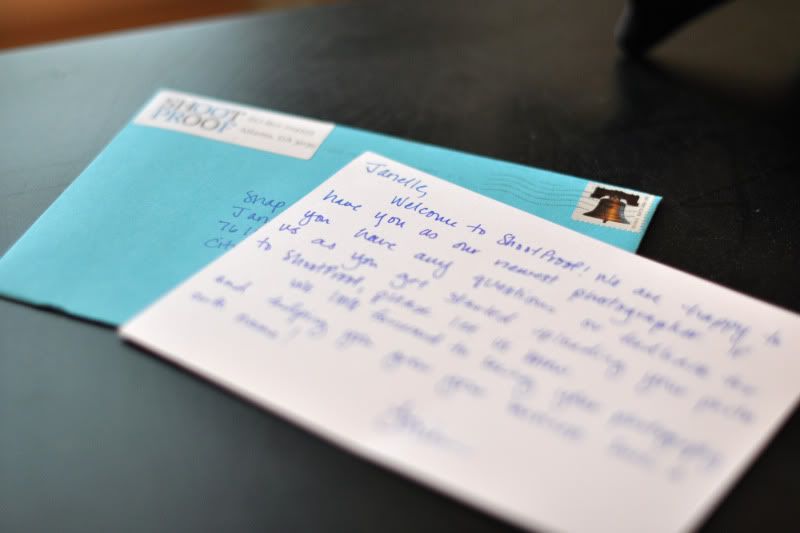 SHOOT
PROOF
Atlanta, GA
Snap
Jan
761
City
Janelle,
Welcome to ShootProof! We are happy to
have you as our newest photographer. If
you have any questions or feedback for
us as you get started uploading your pics
to ShootProof, please let us know.
We look forward to seeing your photography
and helping you grow your business
with ours!